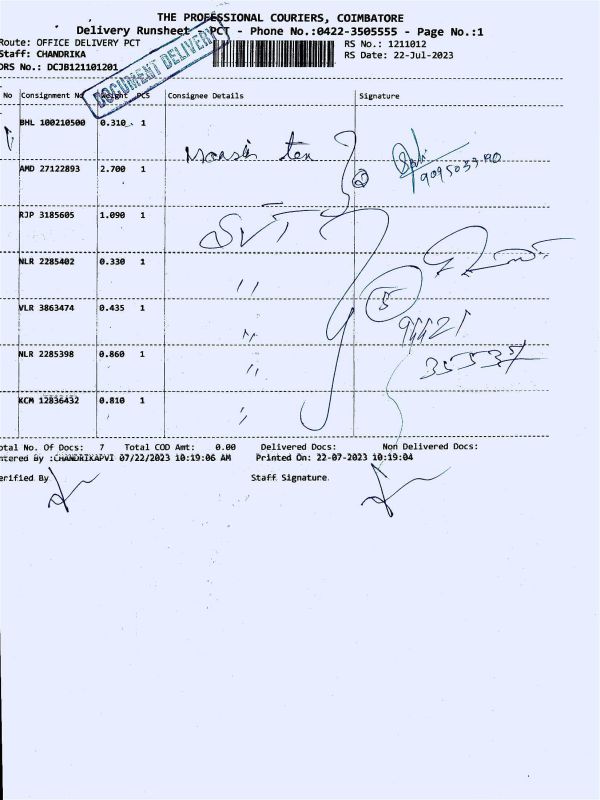 THE PROFESSIONAL COURIERS, COIMBATORE
Delivery Runsheet - PCT - Phone No.:0422-3505555 - Page No.:1
Route: OFFICE DELIVERY PCT
RS No.: 1211012
Staff: CHANDRIKA
RS Date: 22-Jul-2023
DRS No.: DCJB121101201
DOCUMENT DELIVERY
No Consignment No Weight PCS Consignee Details Signature
BHL 100210500 0.310 1
AMD 27122893 2.700 1
2
RJP 3185605 1.090 1
SVT
NLR 2285402 0.330 1
〃
5
VLR 3863474 0.435 1
〃
94421
NLR 2285398 0.860 1
〃
35537
KCM 12836432 0.810 1
〃
otal No. Of Docs: 7 Total COD Amt: 0.00 Delivered Docs: Non Delivered Docs:
ntered By :CHANDRIKAPVI 07/22/2023 10:19:06 AM Printed On: 22-07-2023 10:19:04
erified By Staff Signature